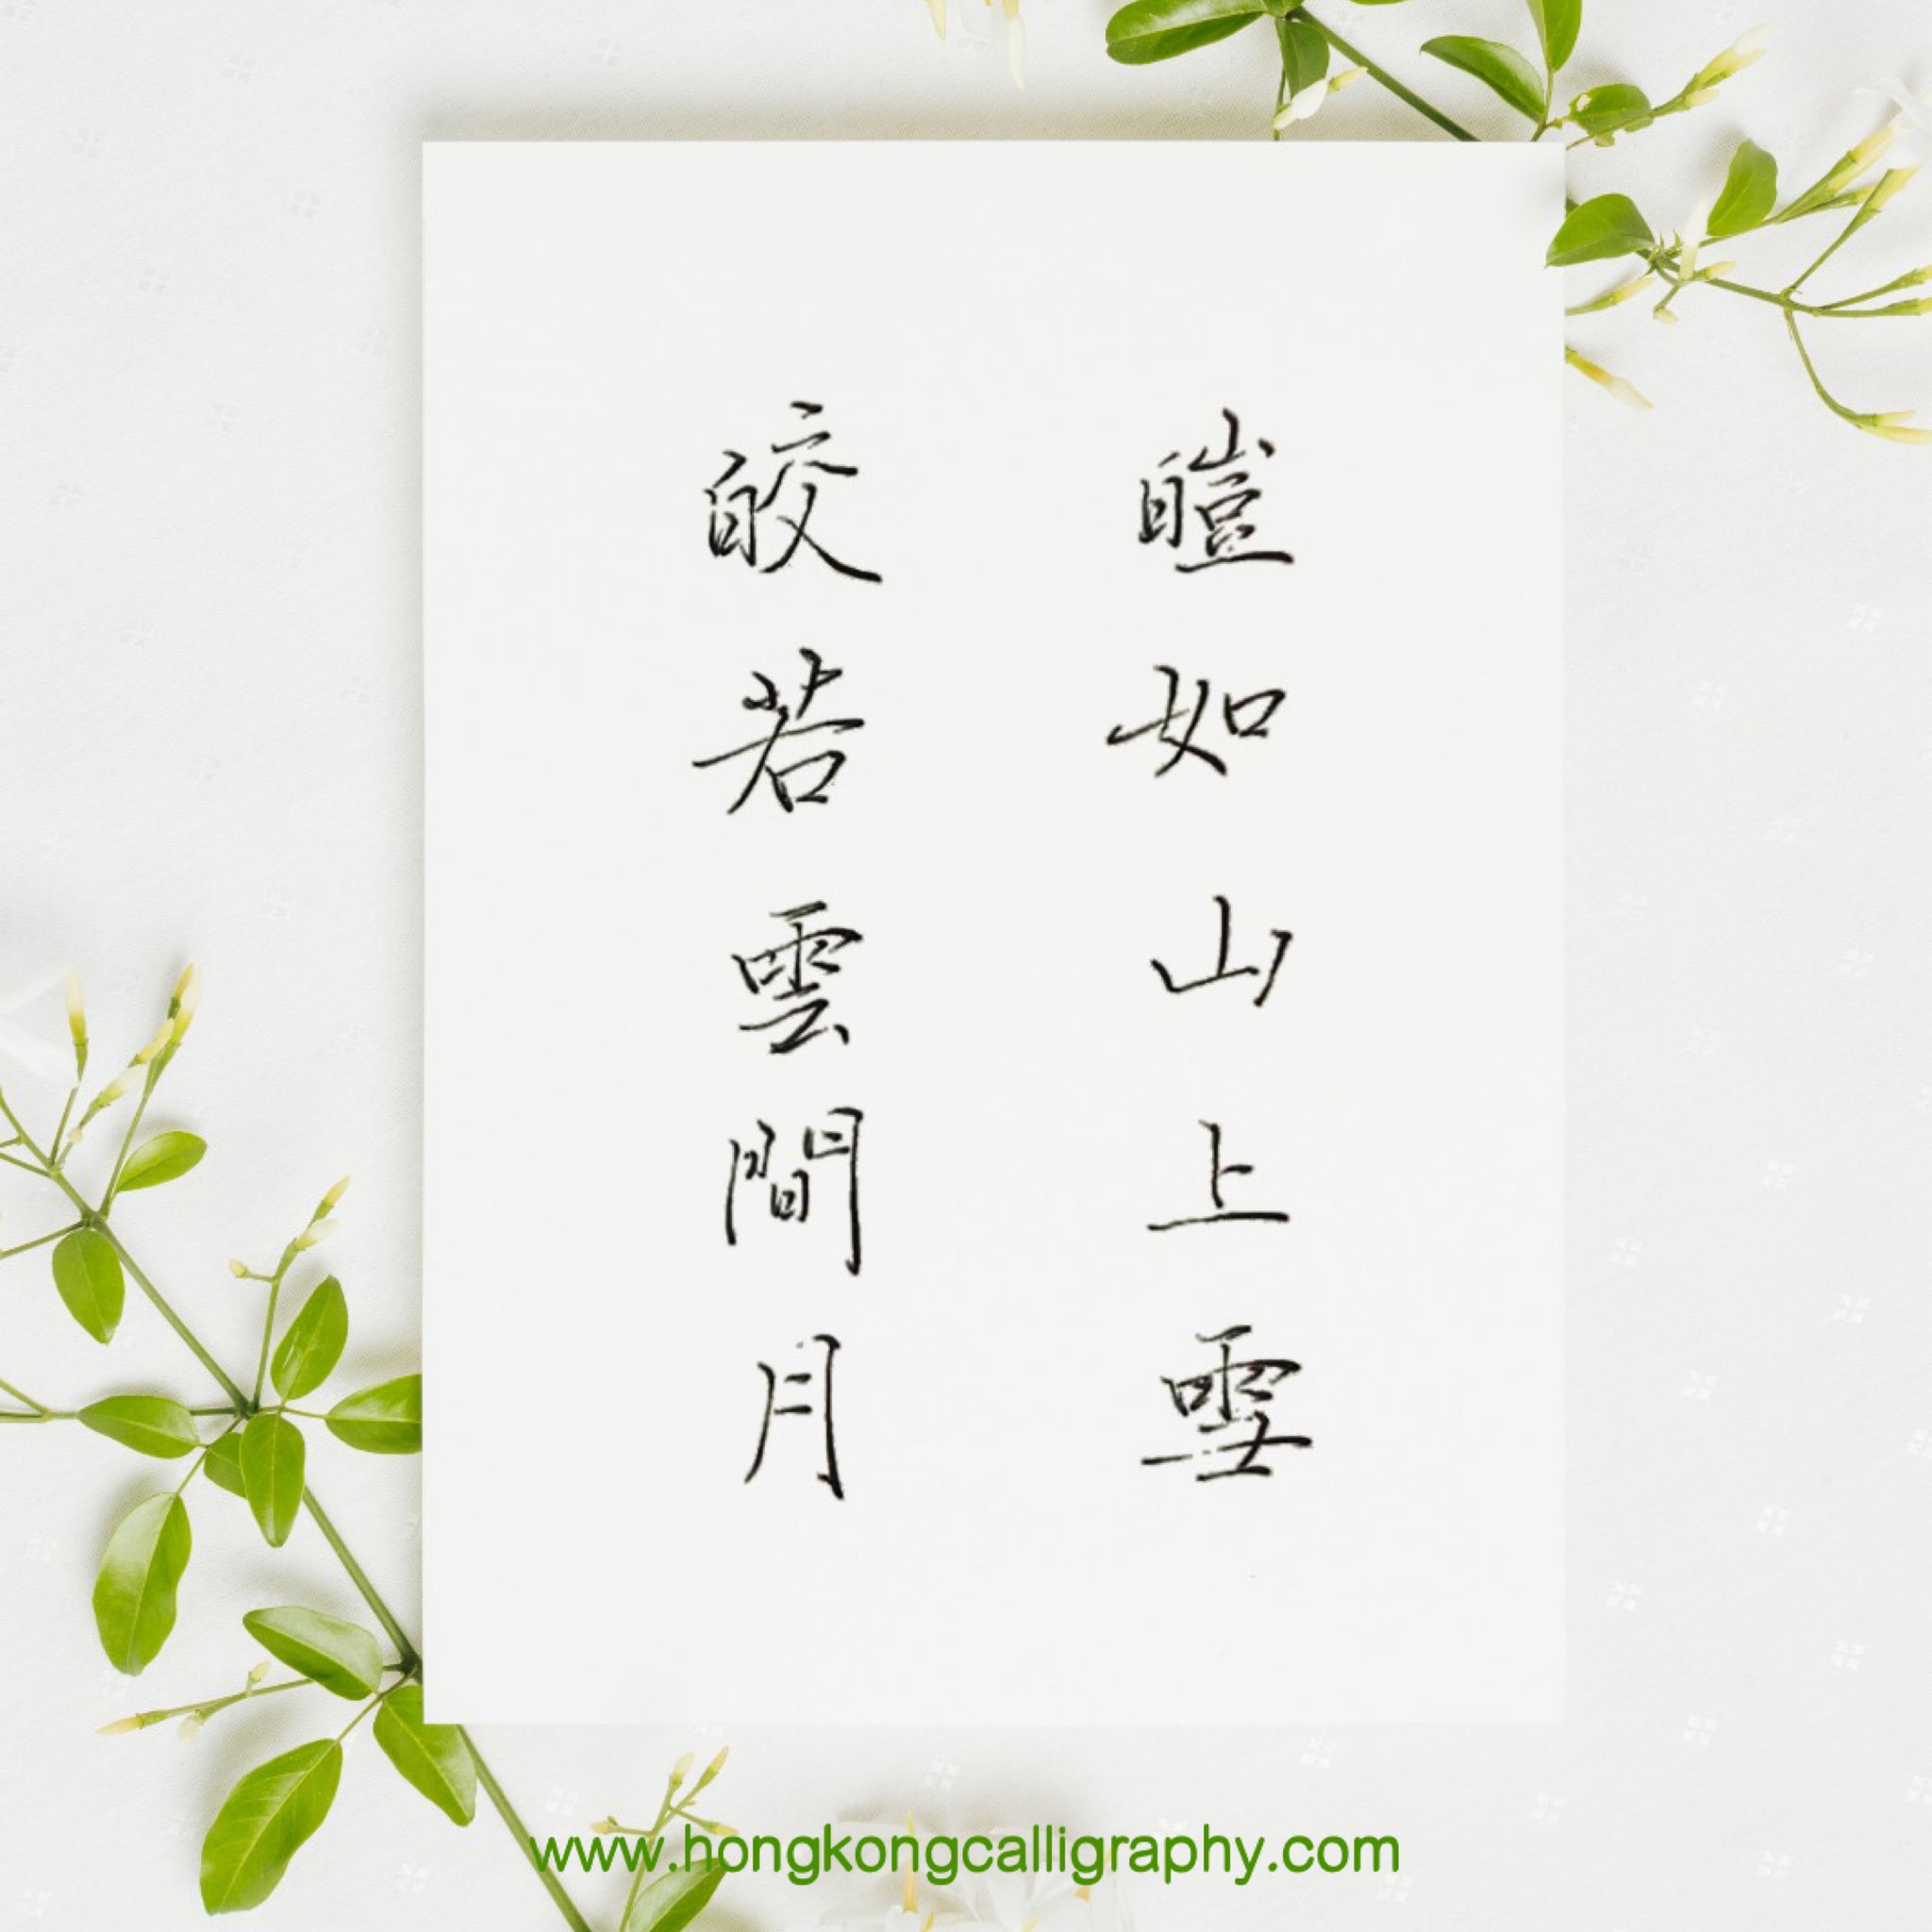 皚如山上雪
皎若雲間月
www.hongkongcalligraphy.com